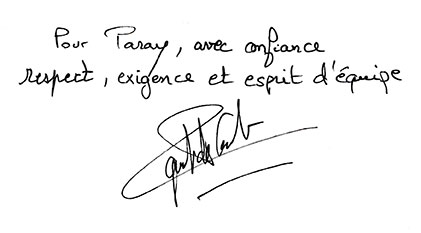 Pour Paray, avec confiance
respect, exigence et esprit d'équipe